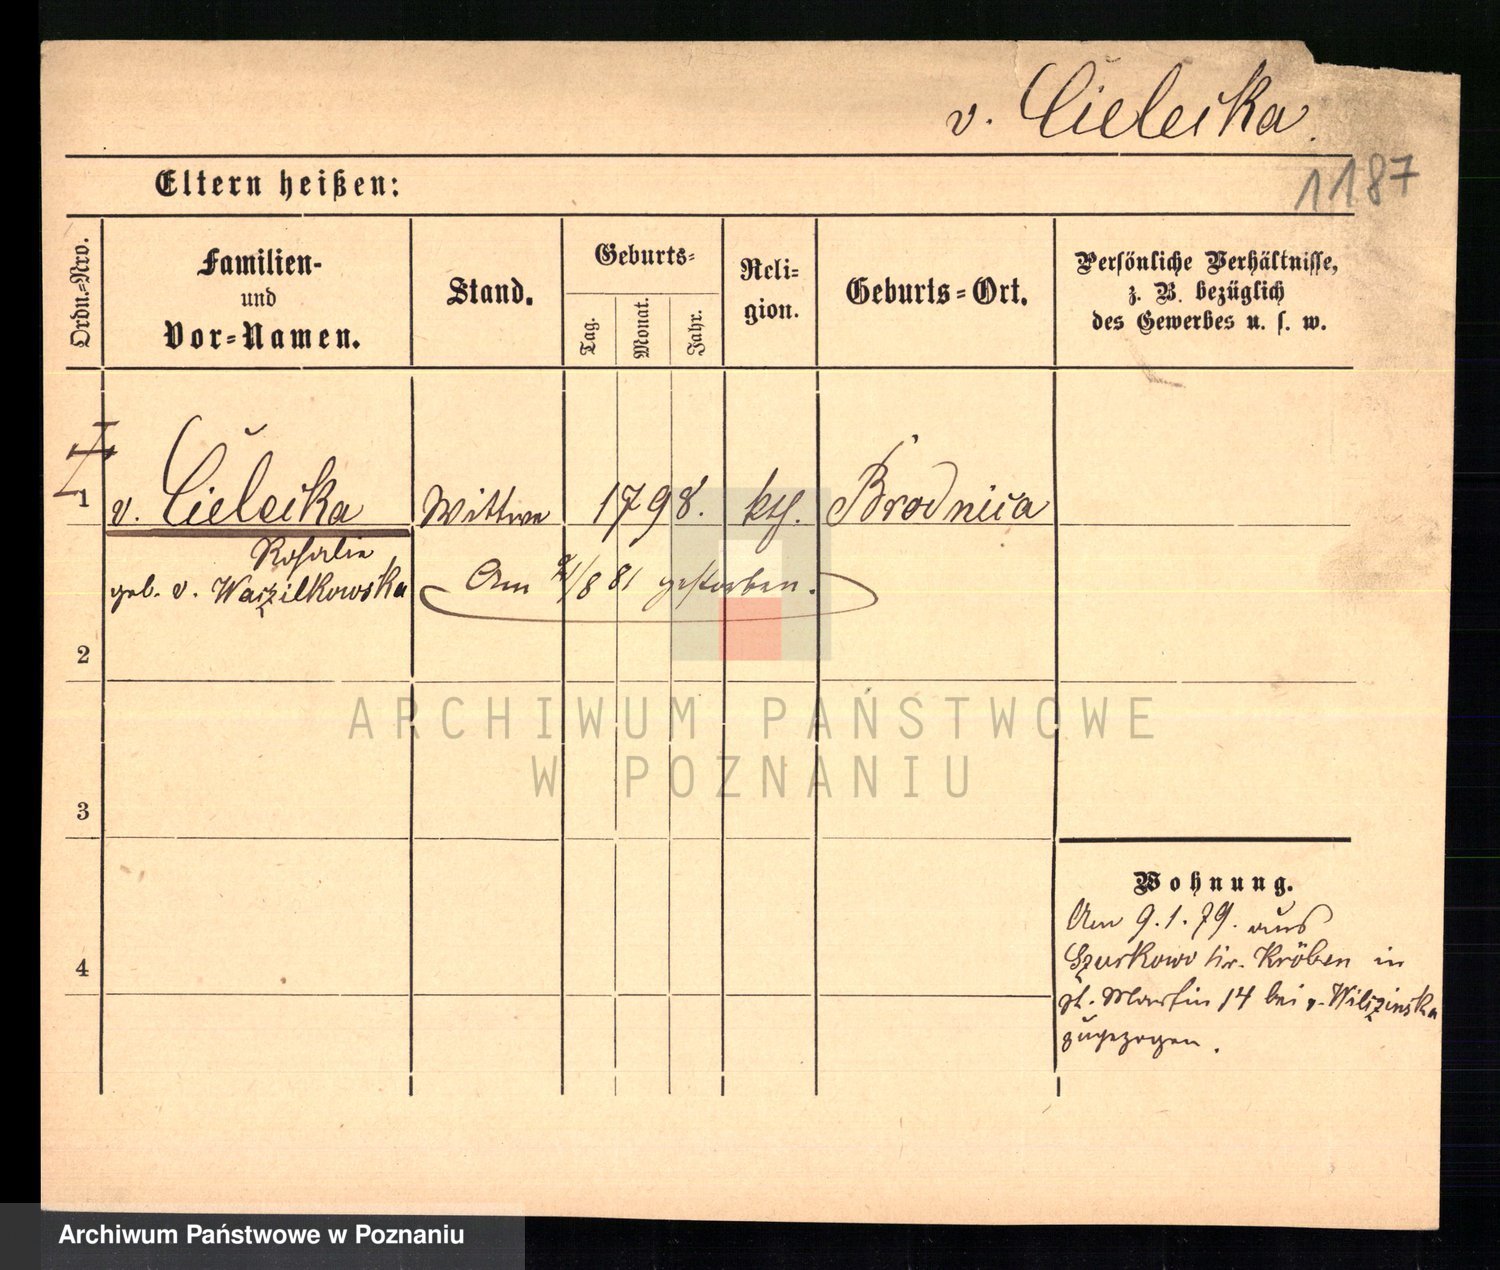 v. Cielecka.
1187
Eltern heißen:
Ordn.=Nro.
Familien-
und
Vor=Namen.
Stand.
Geburts=
Tag.
Monat.
Jahr.
Reli=
gion.
Geburts=Ort.
Persönliche Verhältnisse,
z. B. bezüglich
des Gewerbes u. s. w.
1
v. Cielecka
Wittwe
1798.
kth.
Brodnica
Rosalie
geb. v. Waszilkowska
Am /8 81 gestorben.
2
3
4
Wohnung.
Am 9.1.79. aus
Szurkowo Kr. Kröben in
St. Martin 14 bei v. Wilczinska
zugezogen.
ARCHIWUM PAŃSTWOWE
W POZNANIU
Archiwum Państwowe w Poznaniu